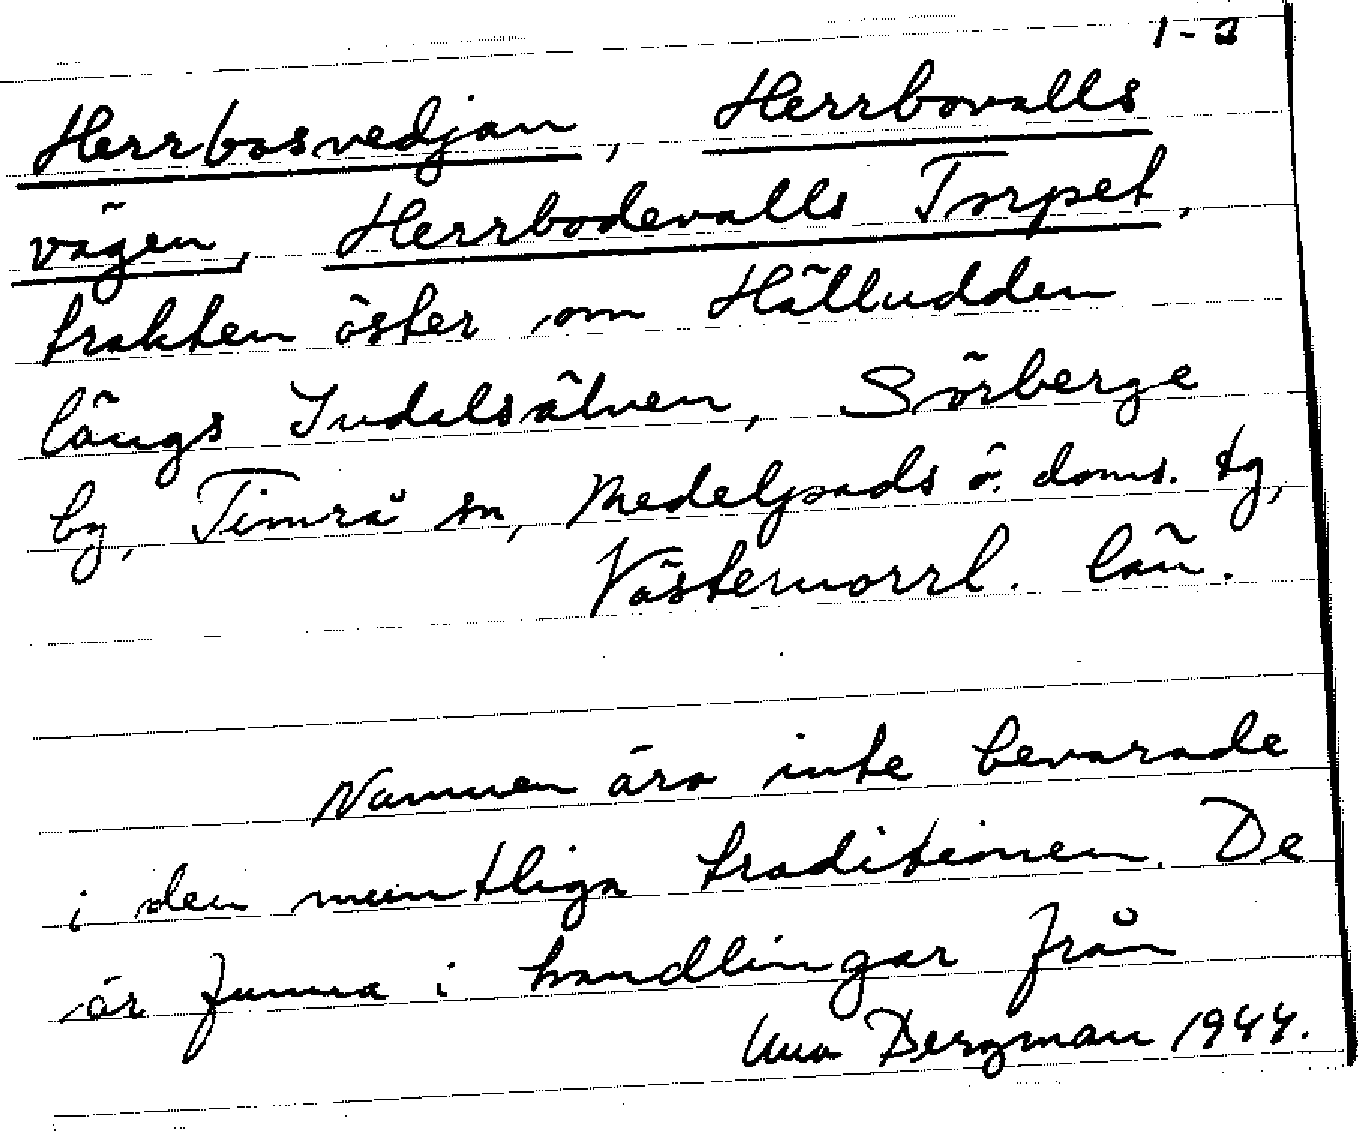 1-2
Herrbosvedjan, Herrbovalls
vägen, Herrbodevalls Torpet,
trakten öster om Hälludden
längs Indalsälven, Sörberge
by, Timrå sn, Medelpads ö. doms. tg,
Västernorrl. län.
Namnen äro inte bevarade
i den muntliga traditionen. De
är funna i handlingar från
Una Bergman 1944.